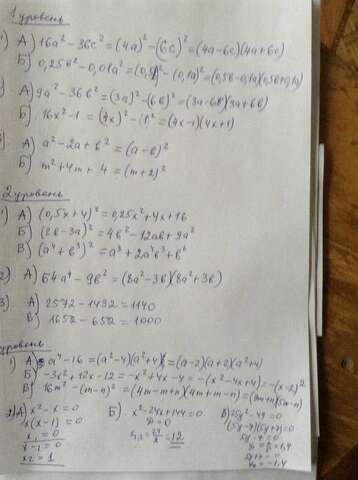 1 уровень
1) А) 16a² - 36c² = (4a)² - (6c)² = (4a-6c)(4a+6c)
Б) 0,25b² - 0,01a² = (0,5b)² - (0,1a)² = (0,5b-0,1a)(0,5b+0,1a)
А) 9a² - 36b² = (3a)² - (6b)² = (3a-6b)(3a+6b)
Б) 16x² - 1 = (4x)² - (1)² = (4x-1)(4x+1)
А) a² - 2a + b² = (a-b)²
Б) m² + 4m + 4 = (m+2)²
2 уровень
1) А) (0,5x+4)² = 0,25x² + 4x + 16
Б) (2b-3a)² = 4b² - 12ab + 9a²
В) (a⁴+b³)² = a⁸ + 2a⁴b³ + b⁶
2) А) 64a⁴ - 9b² = (8a²-3b)(8a²+3b)
3. А) 2572 - 1432 = 1140
В) 1652 - 652 = 1000
уровень
1) А) a⁴ - 16 = (a²-4)(a²+4) = (a-2)(a+2)(a²+4)
Б) -3x² + 12x - 12 = -x² + 4x - 4 = -(x²-4x+4) = -(x-2)²
В) 16m² - (m-n)² = (4m-m+n)(4m+m-n) = (3m+n)(5m-n)
2) А) x² - x = 0 Б) x² - 24x + 144 = 0 В) 25y² - 49 = 0
x(x-1) = 0 D = 0 (5y-7)(5y+7) = 0
x₁ = 0 = 12 5y-7 = 0
x-1 = 0 = 1,4
x₂ = 1 5y+7 = 0
= -1,4